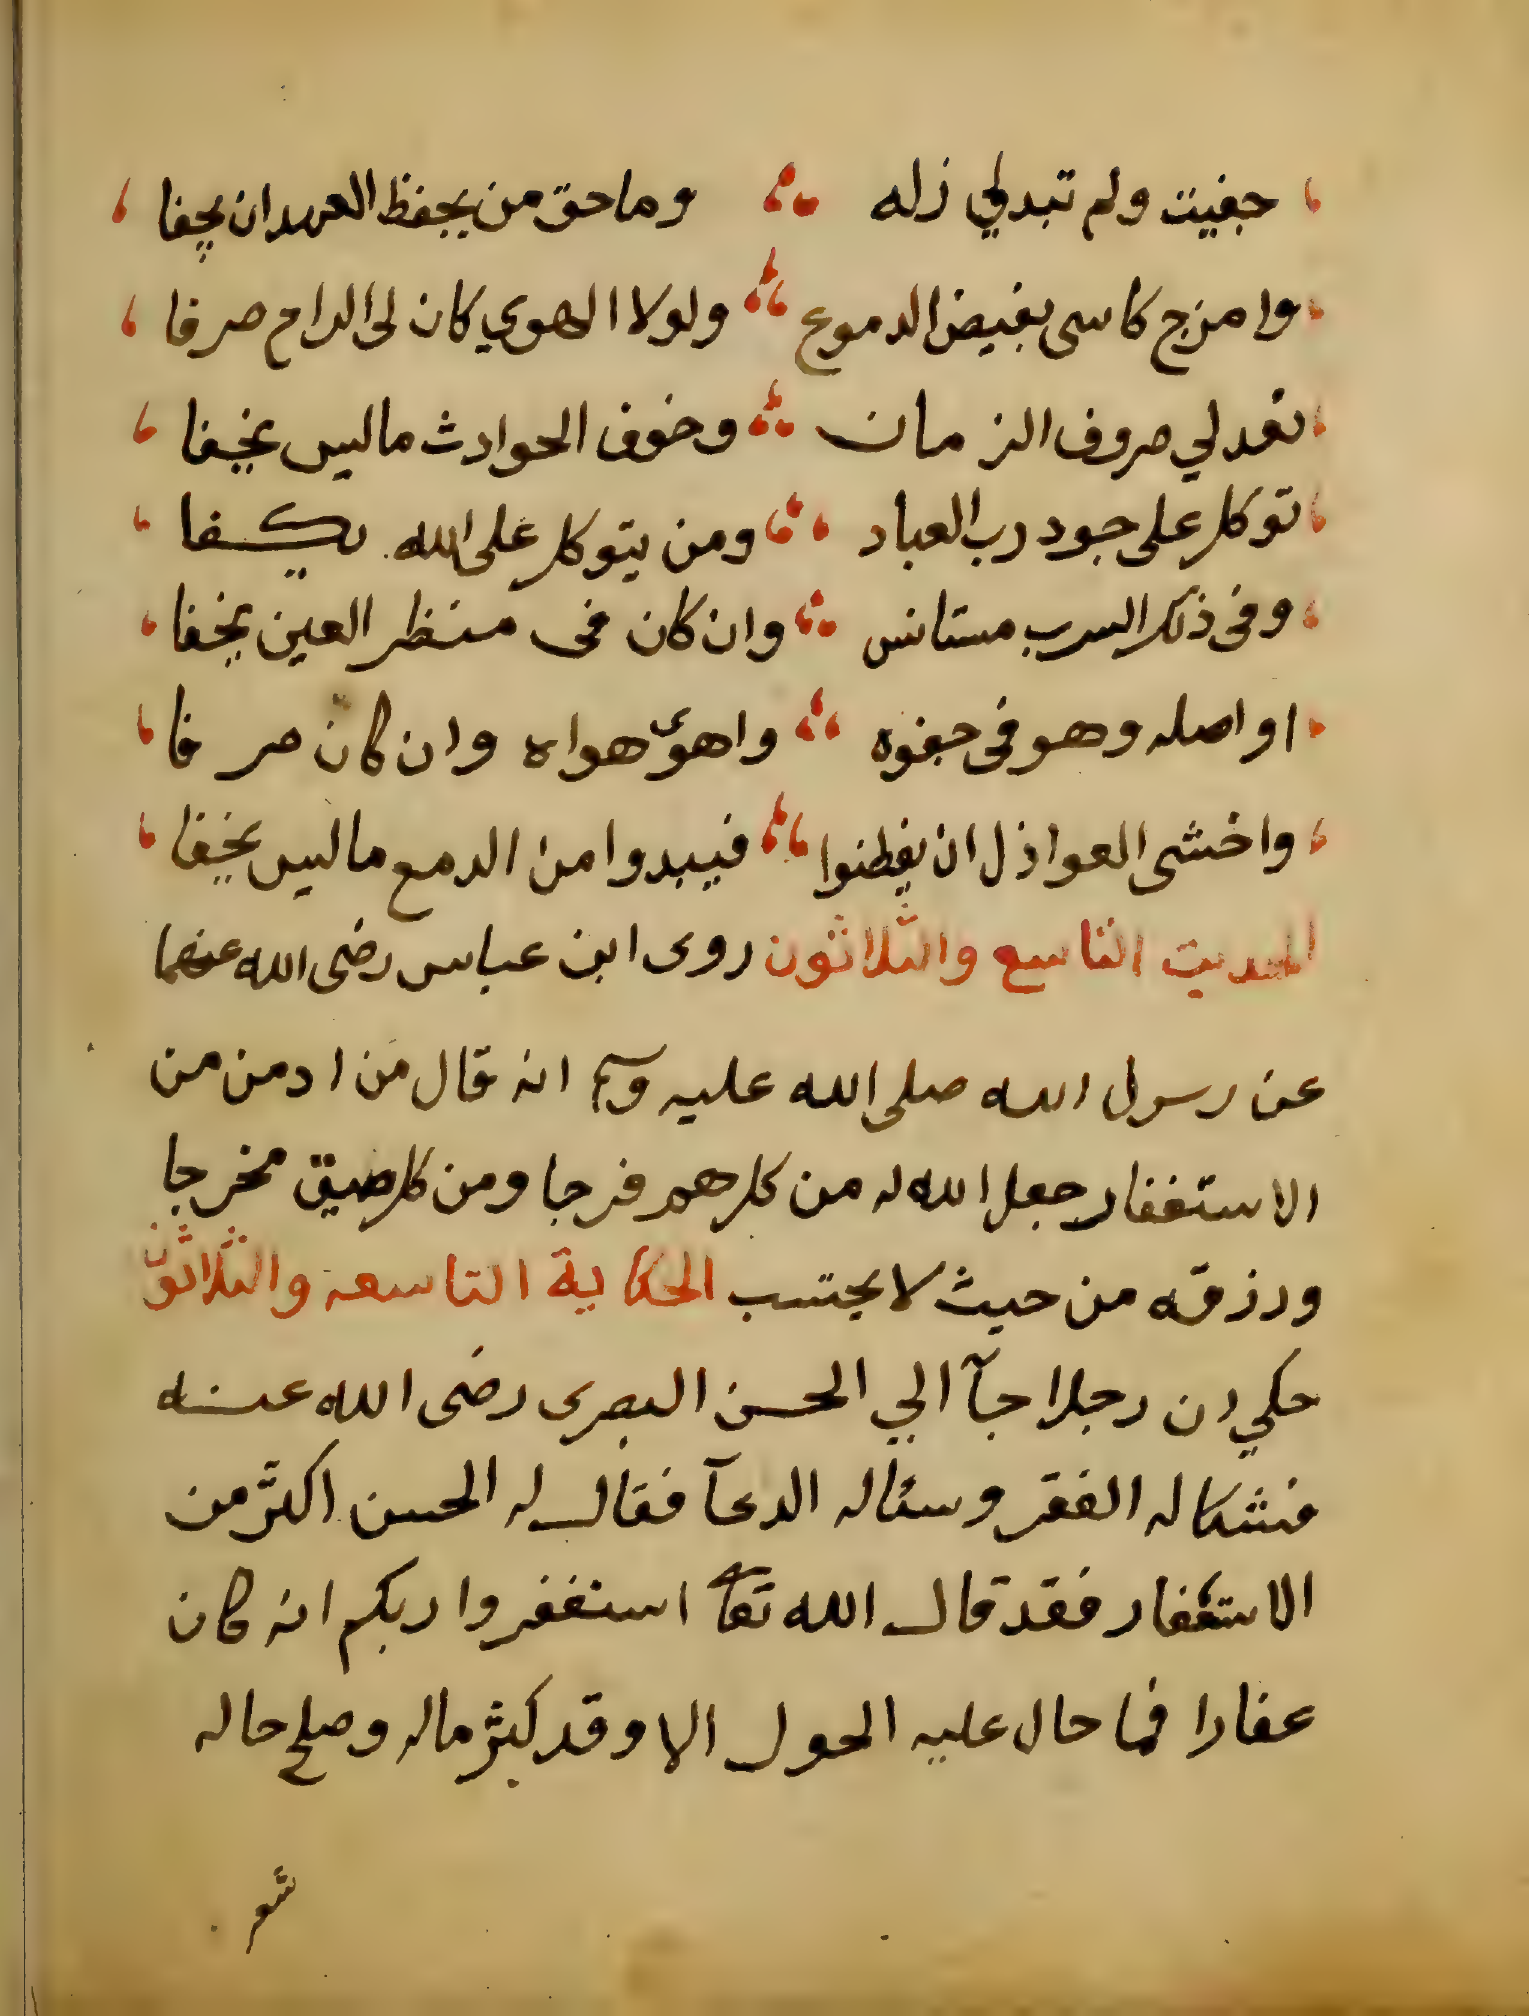 جفيت ولم تبدلي زله وما حق من يحفظ العهد ان يجفا
وامزج كاسى بفيض الدموع ولولا الهوي كان لى الدام صرفا
تعد لي صروف الزمان وخوف الحوادث ما ليس يخفا
توكل على جود رب العباد ومن يتوكل على الله يكفا
وفى ذلك السرب مستانس وان كان فى منظر العين يخفا
اواصله وهو فى جفوه واهوى هواه وان كان صرفا
واخشى العواذل ان يفطنوا فيبدوا من الدمع ما ليس يخفا
الحديث التاسع والثلاثون روى ابن عباس رضى الله عنهما
عن رسول الله صلى الله عليه وسلم انه قال من ادمن من
الاستغفار جعل الله له من كل هم فرجا ومن كل ضيق مخرجا
ورزقه من حيث لا يحتسب الحكاية التاسعه والثلاثون
حكي ان رجلا جآ الي الحسن البصرى رضى الله عنه
فشكا له الفقر وسئاله الدعآ فقال له الحسن اكثر من
الاستغفار فقد قال الله تعا استغفروا ربكم انه كان
غفارا فما حال عليه الحول الا وقد كثر ماله وصلح حاله
شعر